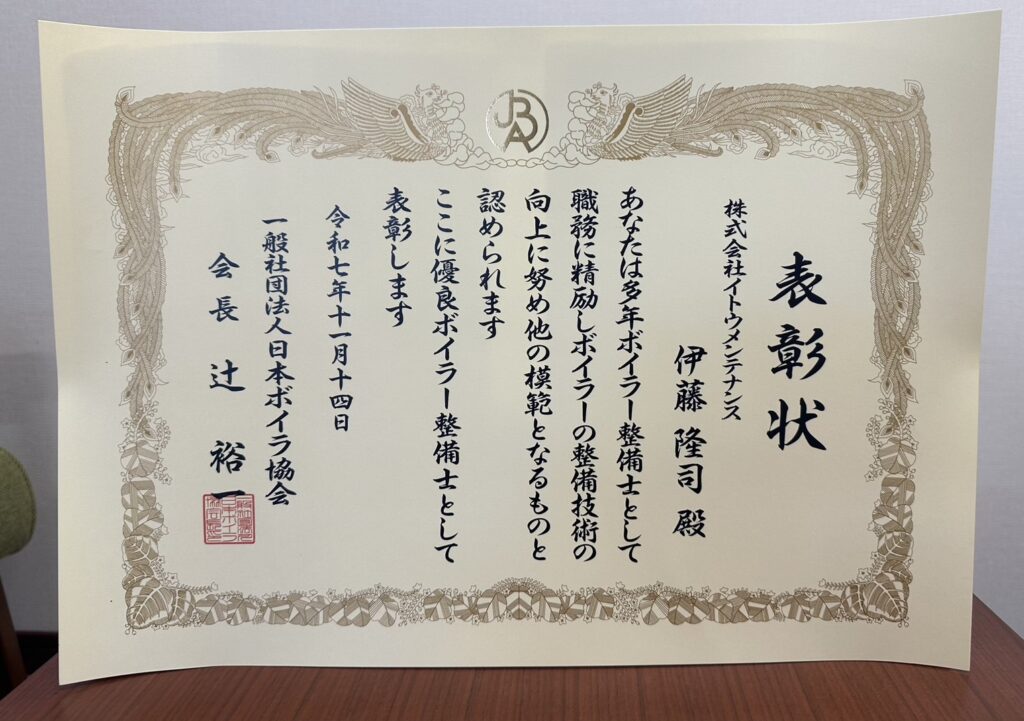 JBA
表彰状
株式会社イトウメンテナンス
伊藤隆司殿
あなたは多年ボイラー整備士として
職務に精励しボイラーの整備技術の
向上に努め他の模範となるものと
認められます
ここに優良ボイラー整備士として
表彰します
令和七年十一月十四日
一般社団法人日本ボイラ協会
会長 辻 裕一